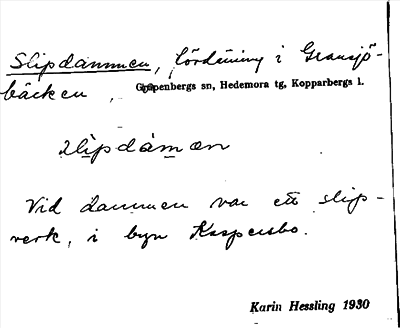 Slipdammen, fördäming i Gransjö-
bäcken,
Garpenbergs sn, Hedemora tg, Kopparbergs l.
slìpdámən
Vid dammen var ett slip-
verk, i byn Kaspersbo.
Karin Hessling 1930